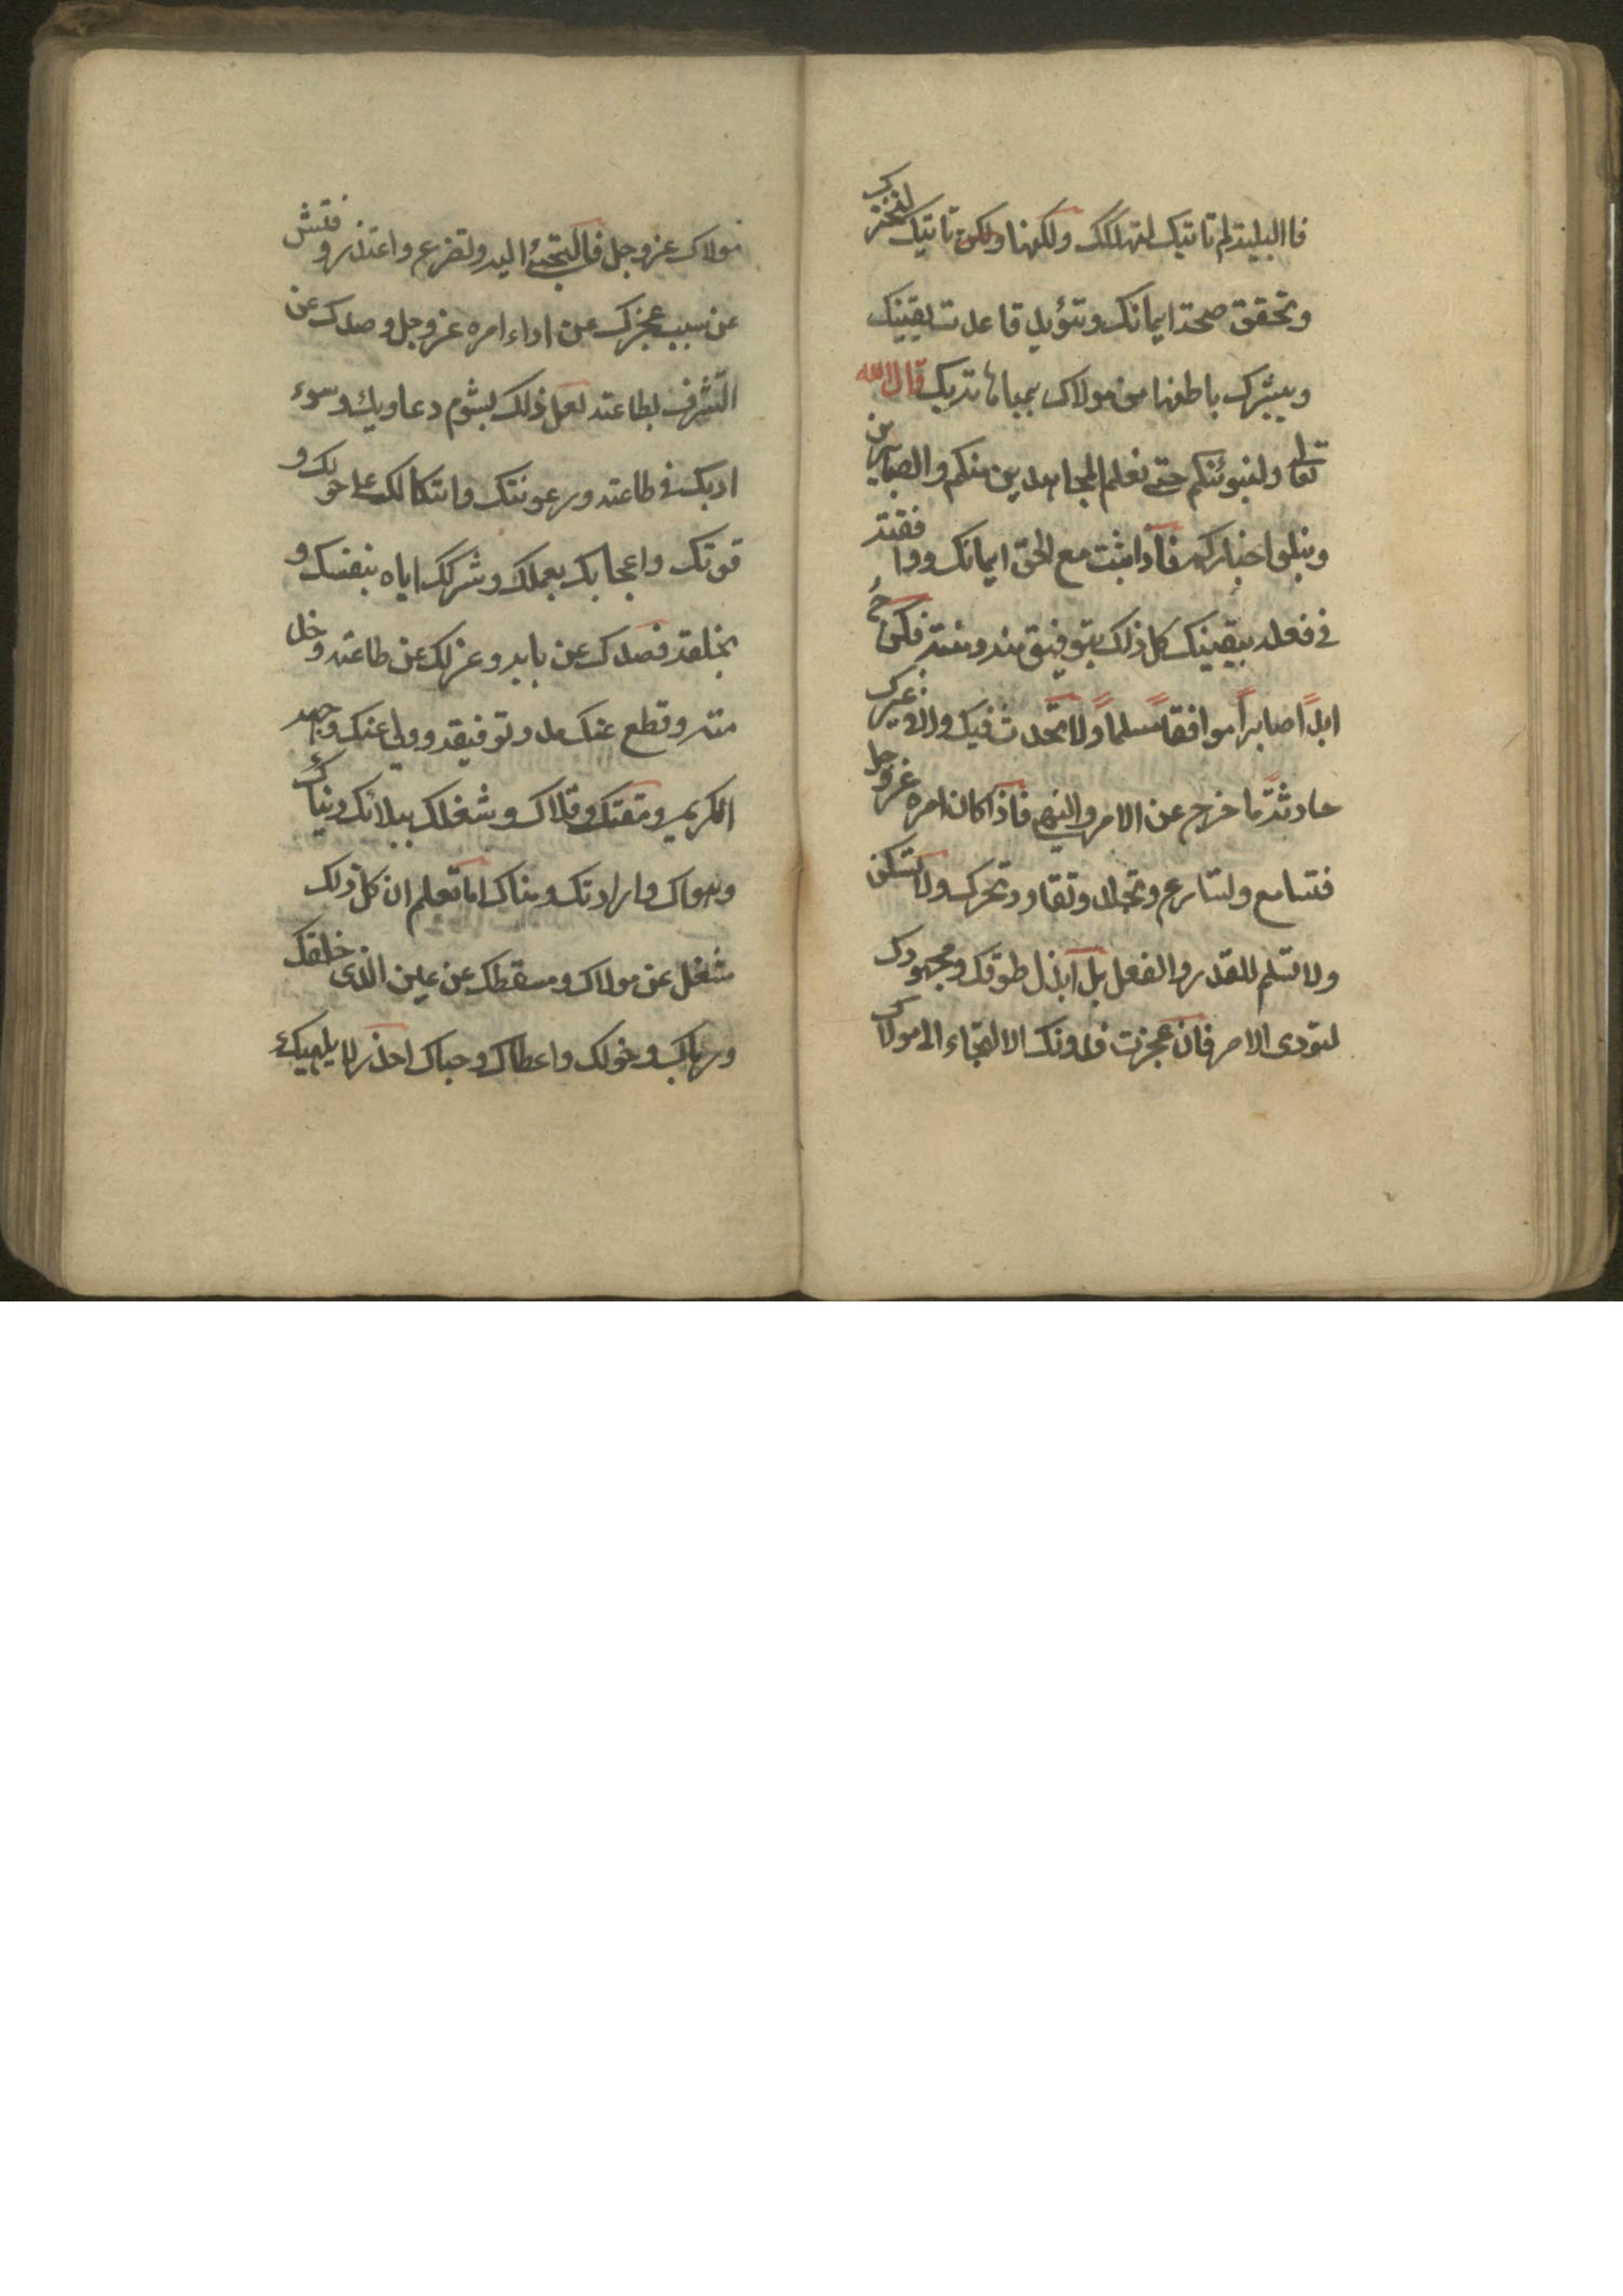 فا البلية لم تاتيك لتهلكك ولكنها ولكن تاتيك لتختبرك
وتحقق صحة ايمانك وتؤيد قاعدت يقينك
ويبشرك باطنها من مولاك بمباهاته بك قال الله
تعالى ولنبلونكم حتى نعلم المجاهدين منكم والصابرين
ونبلوا اخباركم فاذا ثبت مع الحق ايمانك ووافقته
في فعله بيقينك كل ذلك بتوفيق منه ومنته فكن ثم
ابدًا صابرًا موافقًا مسلمًا ولا تحدث فيك ولا في غيرك
حادثة ما خرج عن الامر والنهي فاذا كان امره عز وجل
فتسامع ولتسارع وتحرك ولا تسكن
ولا تسلم للقدر والفعل بل ابذل طوقك ومجهودك
لتؤدى الامر فان عجزت فدونك الالتجاء الى مولاك
مولاك عز وجل فالتجئ اليه وتضرع واعتذر وفتش
عن سبب عجزك عن اداء امره عز وجل وصدك عن
التشرف بطاعته لعل ذلك لشوم دعاويك وسوء
ادبك في طاعته ورعونتك واتكالك على حولك و
قوتك واعجابك بعملك وشركك اياه بنفسك و
بخلقه فصدك عن بابه وعزلك عن طاعته وخدمته
وقطع عنك مدد توفيقه وولى عنك وجهه
الكريم ومقتك وقلاك وشغلك ببلائك دنياك
وهواك وارادتك ومناك اما تعلم ان كل ذلك
مشغل عن مولاك ومسقطك عن عين الذى خلقك
ورباك وخولك واعطاك وحباك احذر لا يلهيك